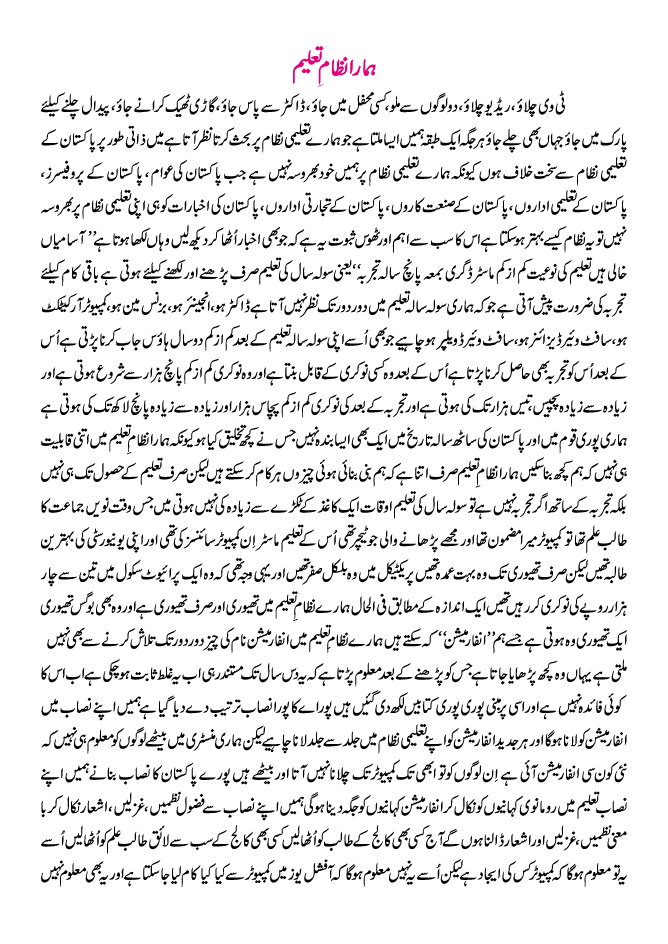 ہمارا نظامِ تعلیم
ٹی وی چلاؤ، ریڈیو چلاؤ، دولوگوں سے ملو، کسی محفل میں جاؤ، ڈاکٹر سے پاس جاؤ، گاڑی ٹھیک کرانے جاؤ، پیدال چلنے کیلئے
پارک میں جاؤ جہاں بھی چلے جاؤ ہر جگہ ایک طبقہ ہمیں ایسا ملتا ہے جو ہمارے تعلیمی نظام پر بحث کرتا نظر آتا ہے میں ذاتی طور پر پاکستان کے
تعلیمی نظام سے سخت خلاف ہوں کیونکہ ہمارے تعلیمی نظام پر ہمیں خود بھروسہ نہیں ہے جب پاکستان کی عوام، پاکستان کے پروفیسرز،
پاکستان کے تعلیمی اداروں، پاکستان کے صنعت کاروں، پاکستان کے تجارتی اداروں، پاکستان کی اخبارات کو ہی اپنی تعلیمی نظام پر بھروسہ
نہیں تو یہ نظام کیسے بہتر ہو سکتا ہے اس کا سب سے اہم اور ٹھوس ثبوت یہ ہے کہ جو بھی اخبار اُٹھا کر دیکھ لیں وہاں لکھا ہوتا ہے ’’آسامیاں
خالی ہیں تعلیم کی نوعیت کم از کم ماسٹر ڈگری بمعہ پانچ سالہ تجربہ‘‘ یعنی سولہ سال کی تعلیم صرف پڑھنے اور لکھنے کیلئے ہوتی ہے باقی کام کیلئے
تجربہ کی ضرورت پیش آتی ہے جو کہ ہماری سولہ سالہ تعلیم میں دور دور تک نظر نہیں آتا ہے ڈاکٹر ہو، انجینئر ہو، بزنس مین ہو، کمپیوٹر آرکیٹکٹ
ہو، سافٹ وئیر ڈیزائنر ہو، سافٹ وئیر ڈویلپر ہو چاہیے جو بھی اُسے اپنی سولہ سالہ تعلیم کے بعد کم از کم دو سال ہاؤس جاب کرنا پڑتی ہے اُس
کے بعد اُس کو تجربہ بھی حاصل کرنا پڑتا ہے اُس کے بعد وہ کسی نوکری کے قابل بنتا ہے اور وہ نوکری کم از کم پانچ ہزار سے شروع ہوتی ہے اور
زیادہ سے زیادہ پچیس، تیس ہزار تک کی ہوتی ہے اور تجربہ کے بعد کی نوکری کم از کم پچاس ہزار اور زیادہ سے زیادہ پانچ لاکھ تک کی ہوتی ہے
ہماری پوری قوم میں اور پاکستان کی ساٹھ سالہ تاریخ میں ایک بھی ایسا بندہ نہیں جس نے کچھ تخلیق کیا ہو کیونکہ ہمارا نظامِ تعلیم میں اتنی قابلیت
ہی نہیں کہ ہم کچھ بنا سکیں ہمارا نظامِ تعلیم صرف اتنا ہے کہ ہم بنی بنائی ہوئی چیزوں ہر کام کر سکتے ہیں لیکن صرف تعلیم کے حصول تک ہی نہیں
بلکہ تجربہ کے ساتھ اگر تجربہ نہیں ہے تو سولہ سال کی تعلیم اوقات ایک کاغذ کے ٹکڑے سے زیادہ کی نہیں ہوتی میں جس وقت نویں جماعت کا
طالب علم تھا تو کمپیوٹر میرا مضمون تھا اور مجھے پڑھانے والی جو ٹیچر تھی اُس کے تعلیم ماسٹر اِن کمپیوٹر سائنسز کی تھی اور اپنی یونیورسٹی کی بہترین
طالبہ تھیں لیکن صرف تھیوری تک وہ بہت عمدہ تھیں پریکٹیکل میں وہ بلکل صفر تھیں اور یہی وجہ تھی کہ وہ ایک پرائیوٹ سکول میں تین سے چار
ہزار روپے کی نوکری کر رہیں تھیں ایک اندازہ کے مطابق فی الحال ہمارے نظامِ تعلیم میں تھیوری اور صرف تھیوری ہے اور وہ بھی بوگس تھیوری
ایک تھیوری وہ ہوتی ہے جسے ہم ’’انفارمیشن‘‘ کہ سکتے ہیں ہمارے نظامِ تعلیم میں انفارمیشن نام کی چیز دور دور تک تلاش کرنے سے بھی نہیں
ملتی ہے یہاں وہ کچھ پڑھایا جاتا ہے جس کو پڑھنے کے بعد معلوم پڑتا ہے کہ یہ دس سال تک مستند رہی اب یہ غلط ثابت ہو چکی ہے اب اس کا
کوئی فائدہ نہیں ہے اور اسی پر مبنی پوری پوری کتابیں لکھ دی گئیں ہیں پورا کے پورا نصاب ترتیب دے دیا گیا ہے ہمیں اپنے نصاب میں
انفارمیشن کو لانا ہوگا اور ہر جدید انفارمیشن کو اپنے تعلیمی نظام میں جلد سے جلد لانا چاہیے لیکن ہماری منسٹری میں بیٹھے لوگوں کو معلوم ہی نہیں کہ
نئی کون سی انفارمیشن آئی ہے اِن لوگوں کو تو ابھی تک کمپیوٹر تک چلانا نہیں آتا اور بیٹھے ہیں پورے پاکستان کا نصاب بنانے ہمیں اپنے
نصاب تعلیم میں رومانوی کہانیوں کو نکال کر انفارمیشن کہانیوں کو جگہ دینا ہوگی ہمیں اپنے نصاب سے فضول نظمیں، غزلیں، اشعار نکال کر با
معنی نظمیں، غزلیں اور اشعار ڈالنا ہوں گے آج کسی بھی کالج کے طالب کو اُٹھا لیں کسی بھی کالج کے سب سے لائق طالب علم کو اُٹھا لیں اُسے
یہ تو معلوم ہوگا کہ کمپیوٹر کس کی ایجاد ہے لیکن اُسے یہ نہیں معلوم ہوگا کہ آفشل یوز میں کمپیوٹر سے کیا کیا کام لیا جا سکتا ہے اور یہ بھی معلوم نہیں